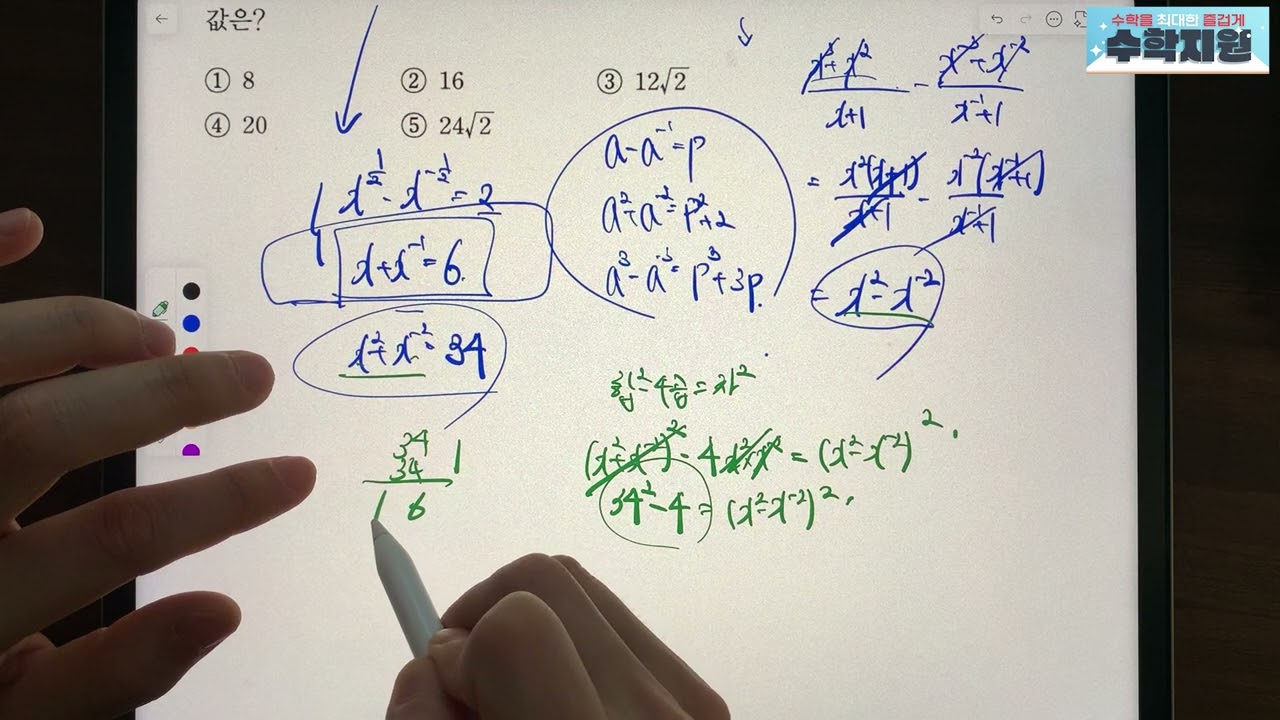 값은?
① 8 ② 16 ③ 12√2
④ 20 ⑤ 24√2
수학을 최대한 즐겁게
수학지원
x^(1/2) - x^(-1/2) = 2
x + x^-1 = 6.
x^2 + x^-2 = 34
a - a^-1 = p
a^2 + a^-2 = p^2 + 2
a^3 - a^-3 = p^3 + 3p.
(x^3 + x^2)/(x+1) - (x^-3 + x^-2)/(x^-1+1)
= x^2(x+1)/(x+1) - x^-2(x^-1+1)/(x^-1+1)
= x^2 - x^-2
합^2 - 4곱 = 차^2
(x^2 + x^-2)^2 - 4x^2x^-2 = (x^2 - x^-2)^2.
34^2 - 4 = (x^2 - x^-2)^2.
34
34
1
1 6